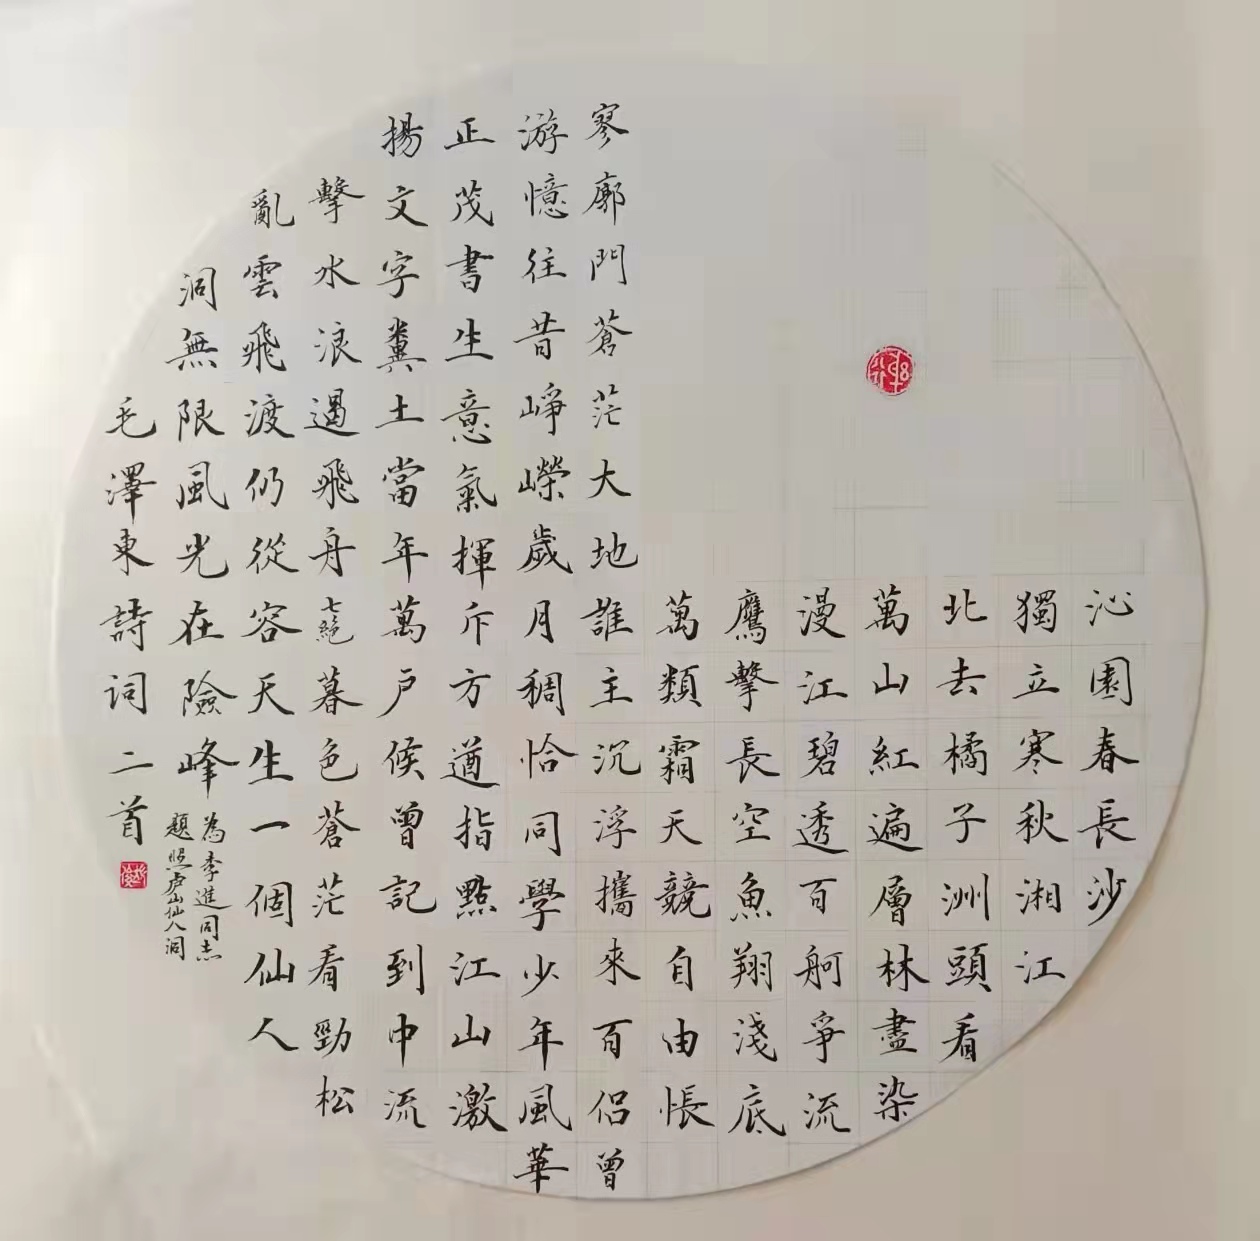 沁園春長沙
獨立寒秋湘江
北去橘子洲頭看
萬山紅遍層林盡染
漫江碧透百舸爭流
鷹擊長空魚翔淺底
萬類霜天競自由悵
寥廓門蒼茫大地誰主沉浮攜來百侣曾
游憶往昔崢嶸歲月稠恰同學少年風華
正茂書生意氣揮斥方遒指點江山激
揚文字糞土當年萬户侯曾記到中流
擊水浪遏飛舟七絕暮色蒼茫看勁松
亂雲飛渡仍從容天生一個仙人
洞無限風光在險峰
為李進同志
題照庐山仙人洞
毛澤東詩詞二首